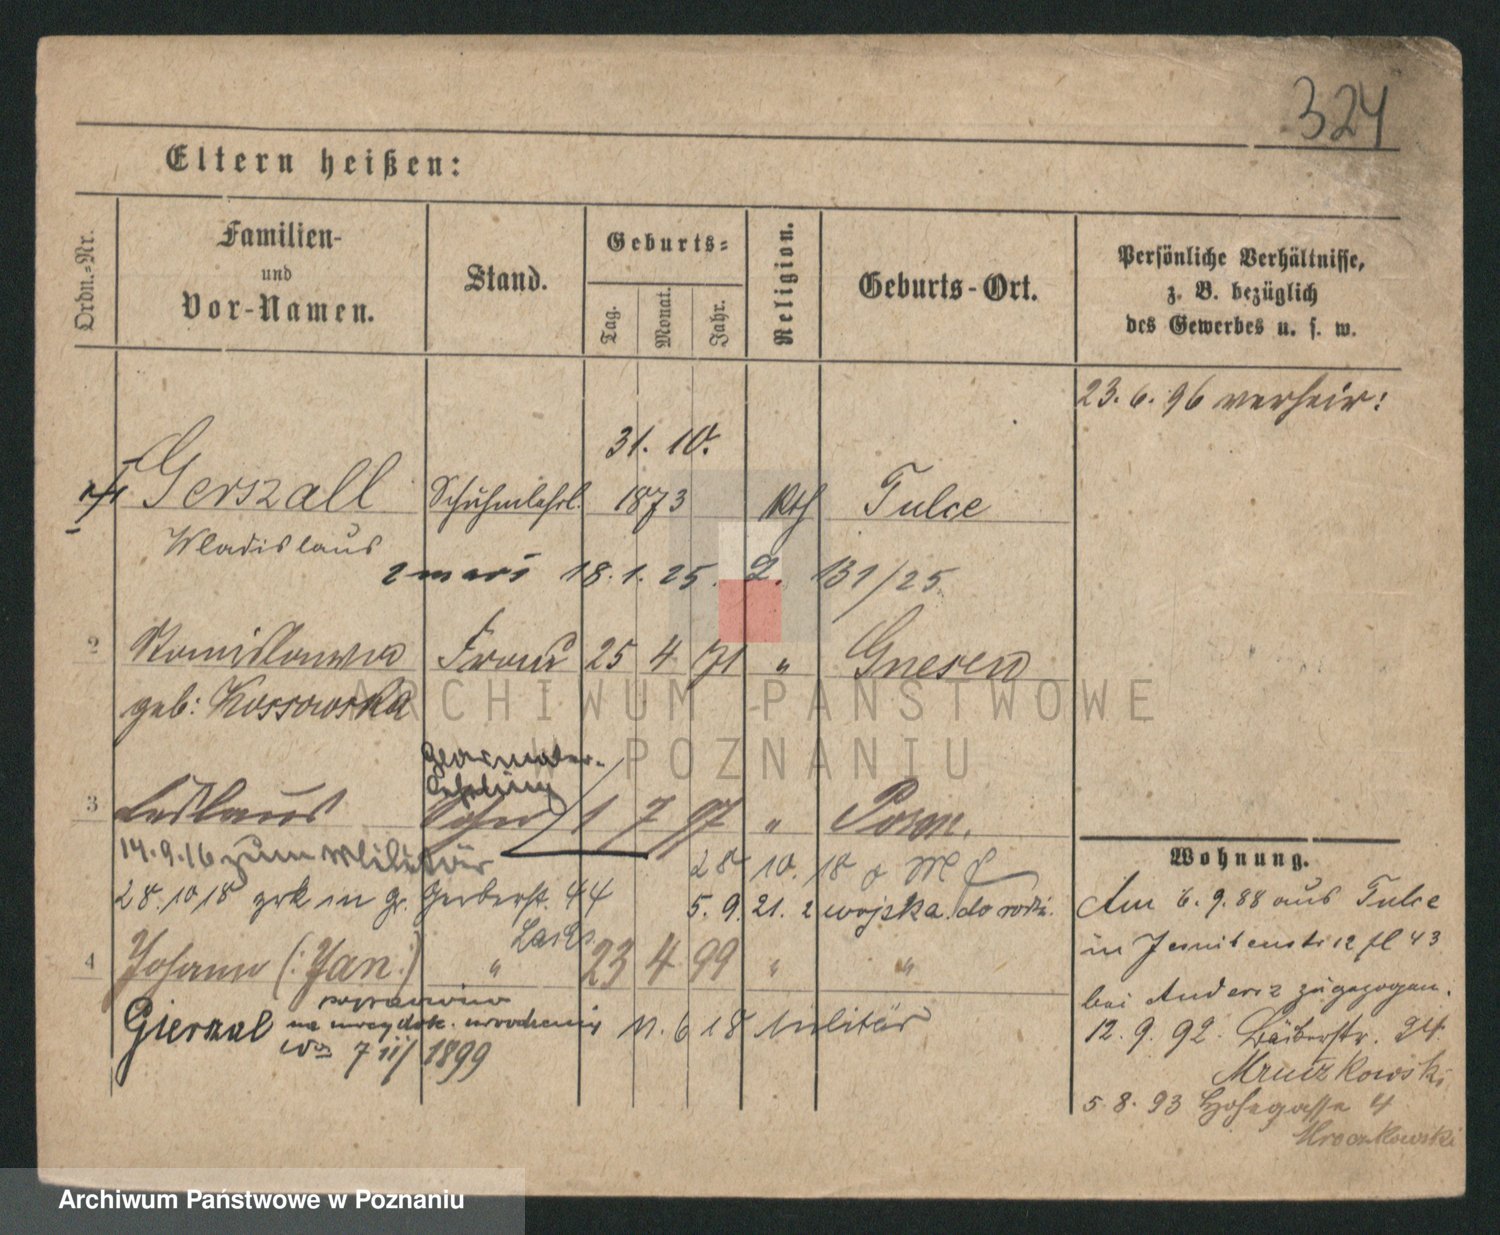 324
Eltern heißen:
Ordn.-Nr.
Familien-
und
Vor-Namen.
Stand.
Geburts-
Tag.
Monat.
Jahr.
Religion.
Geburts-Ort.
Persönliche Verhältnisse,
z. B. bezüglich
des Gewerbes u. s. w.
23. 6. 96 verheir:
31. 10.
Gerszall Schuhmlehrl. 1873 Kth Tulce
Wladislaus
zmarł 18. 1. 25. 2. 131/25
2 Stanislawa Frau 25 4 71 " Gnesen
geb: Kossowska
Lehrling
3 Ladislaus Sohn 1 7 97 " Posen.
14. 9. 16 zum Militär 28 10. 18
28. 10 18 zrk in gr. Gerberst. 44 5. 9. 21. z wojska do rodz.
4 Johann (: Jan :) " 23 4 99 " "
Gierszal poprawiono
na mocy dok. urodzenia 11. 6 18 Militär
7 III 1899
Wohnung.
Am 6. 9. 88 aus Tulce
in Jesuitenstr 12 fl 43
bei Andersz zugezogen.
12. 9. 92. 24.
Mruczkowski
5. 8. 93 Hohegasse 4
Mroczkowski
ARCHIWUM PAŃSTWOWE
W POZNANIU
Archiwum Państwowe w Poznaniu